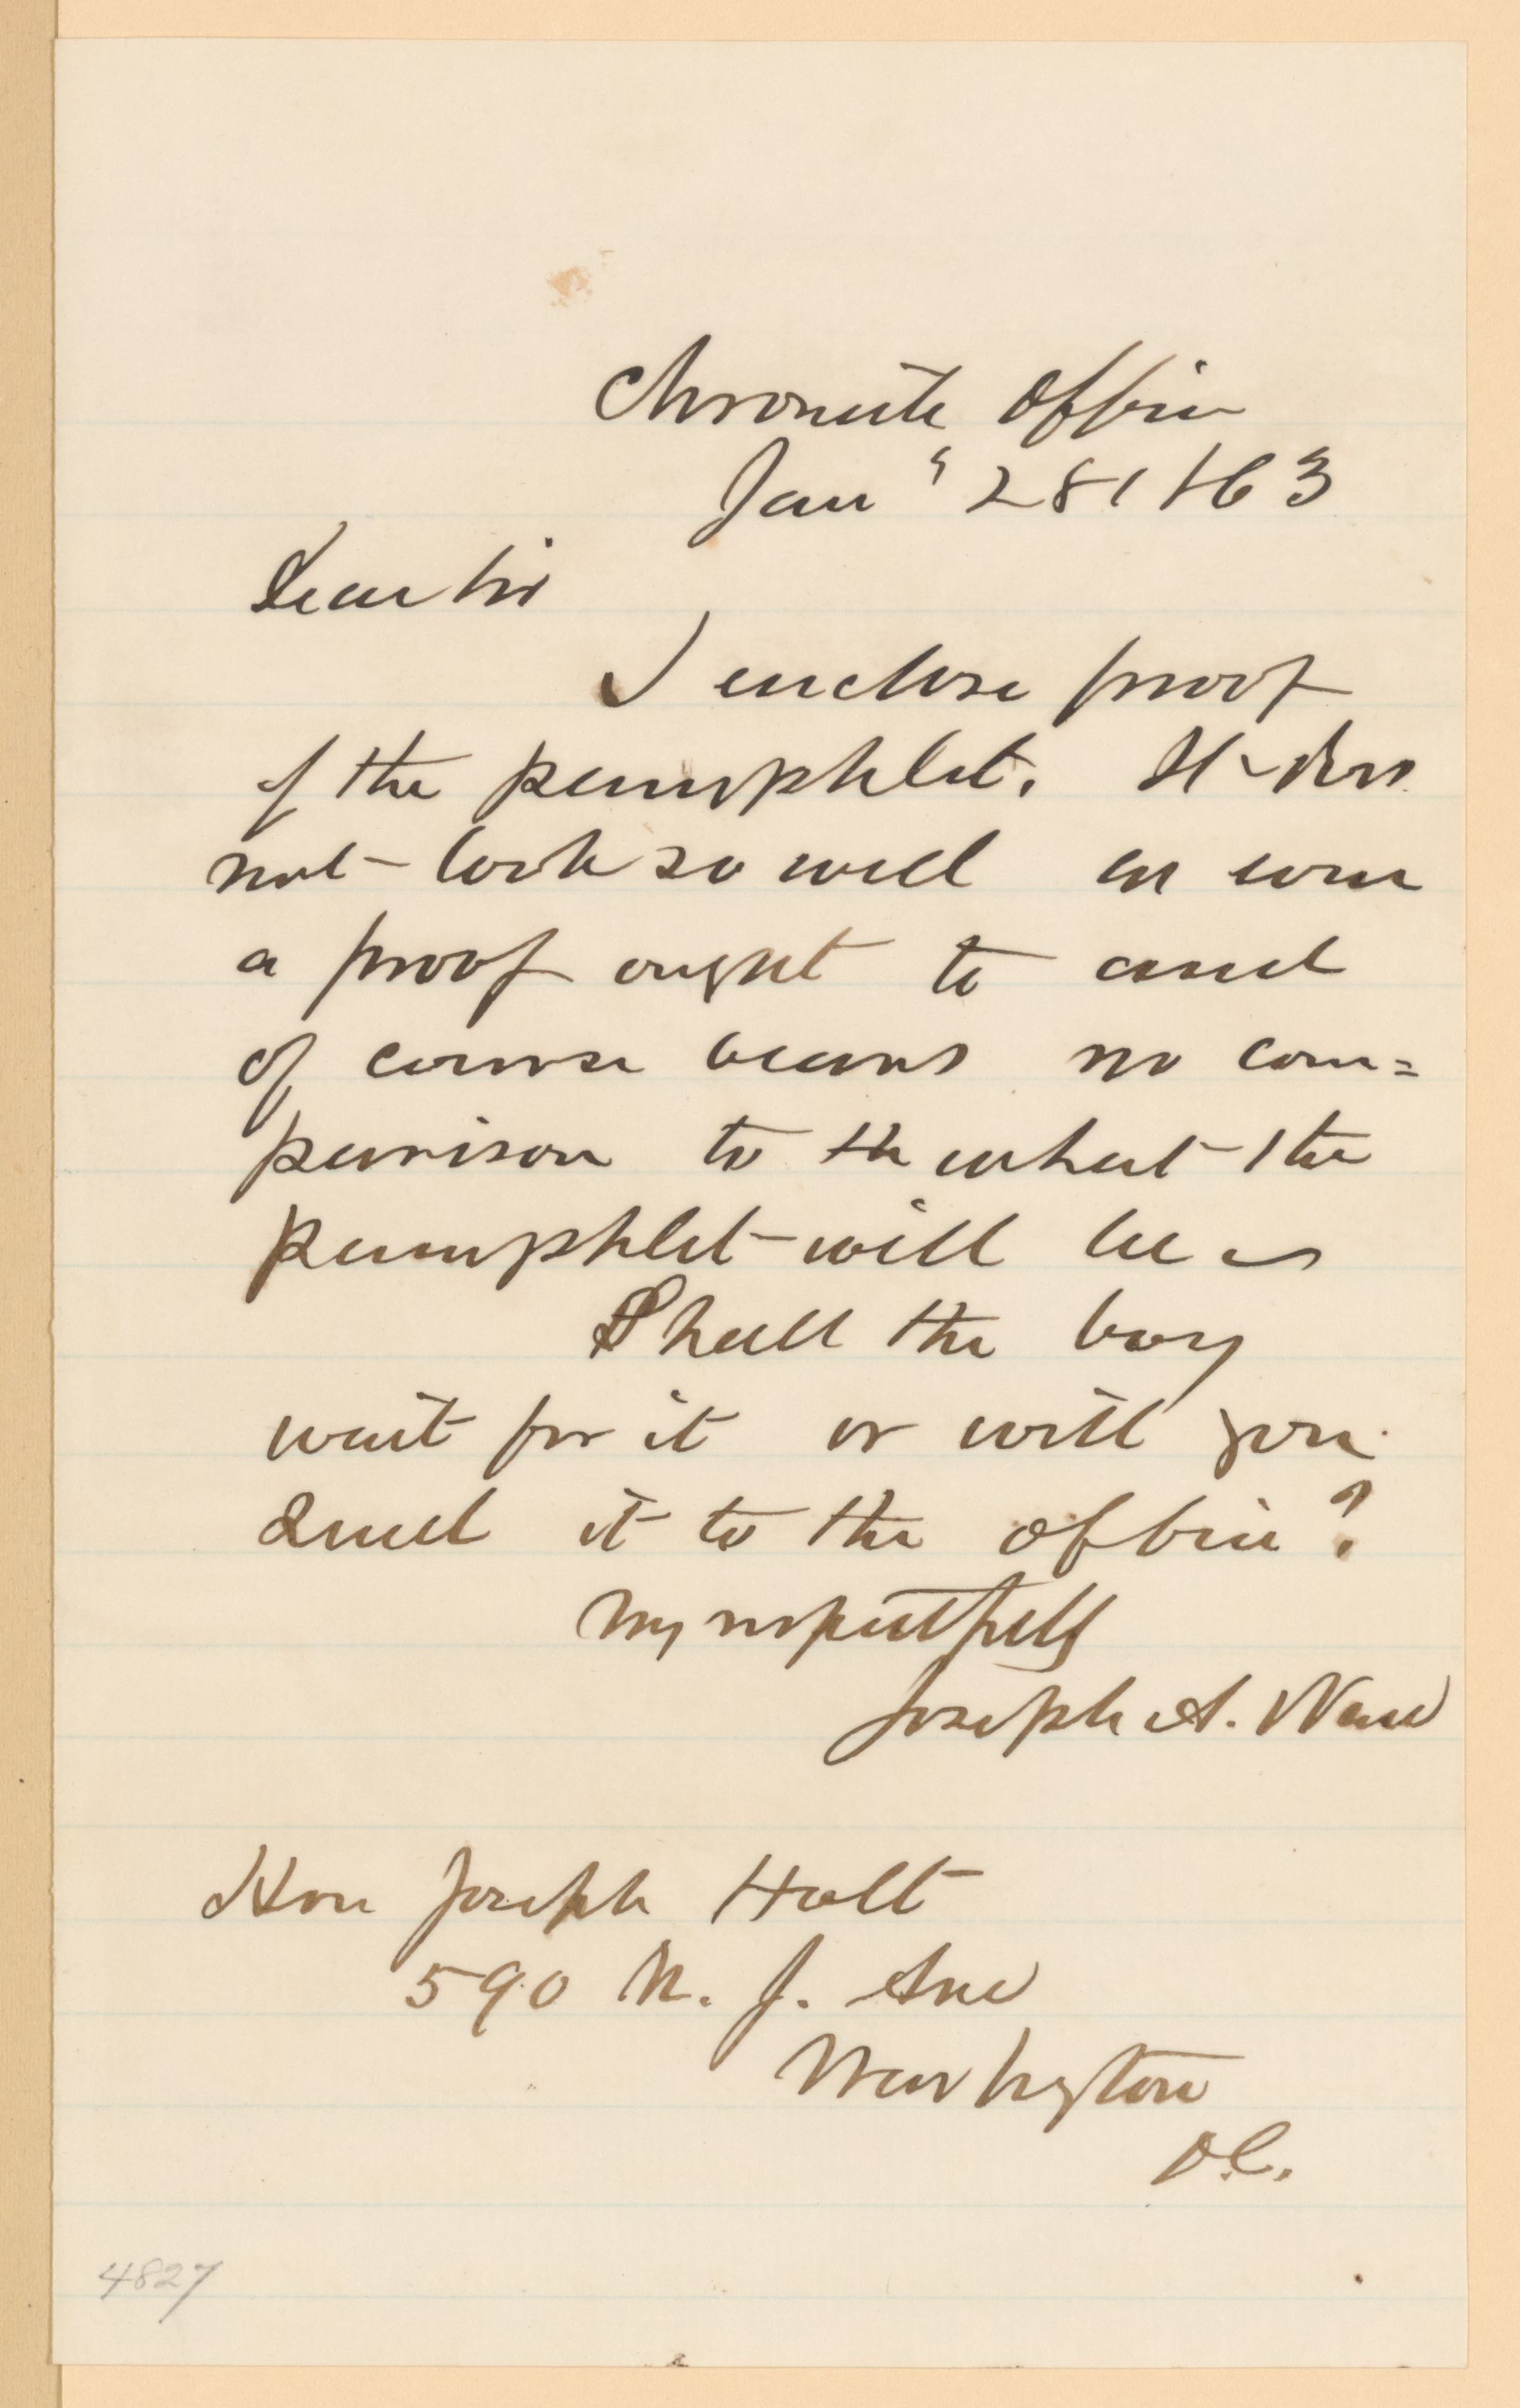 Chronicle Office
Jany 28 1863
Dear Sir
I enclose proof
of the pamphlet. It does
not look so well as even
a proof ought to and
of course bears no com=
parison to th what the
pamphlet will be
Shall the boy
wait for it or will you
send it to the office?
Very respectfully
Joseph A. Ware
Hon Joseph Holt
590 N. J. Ave
Washington
D.C.
4827